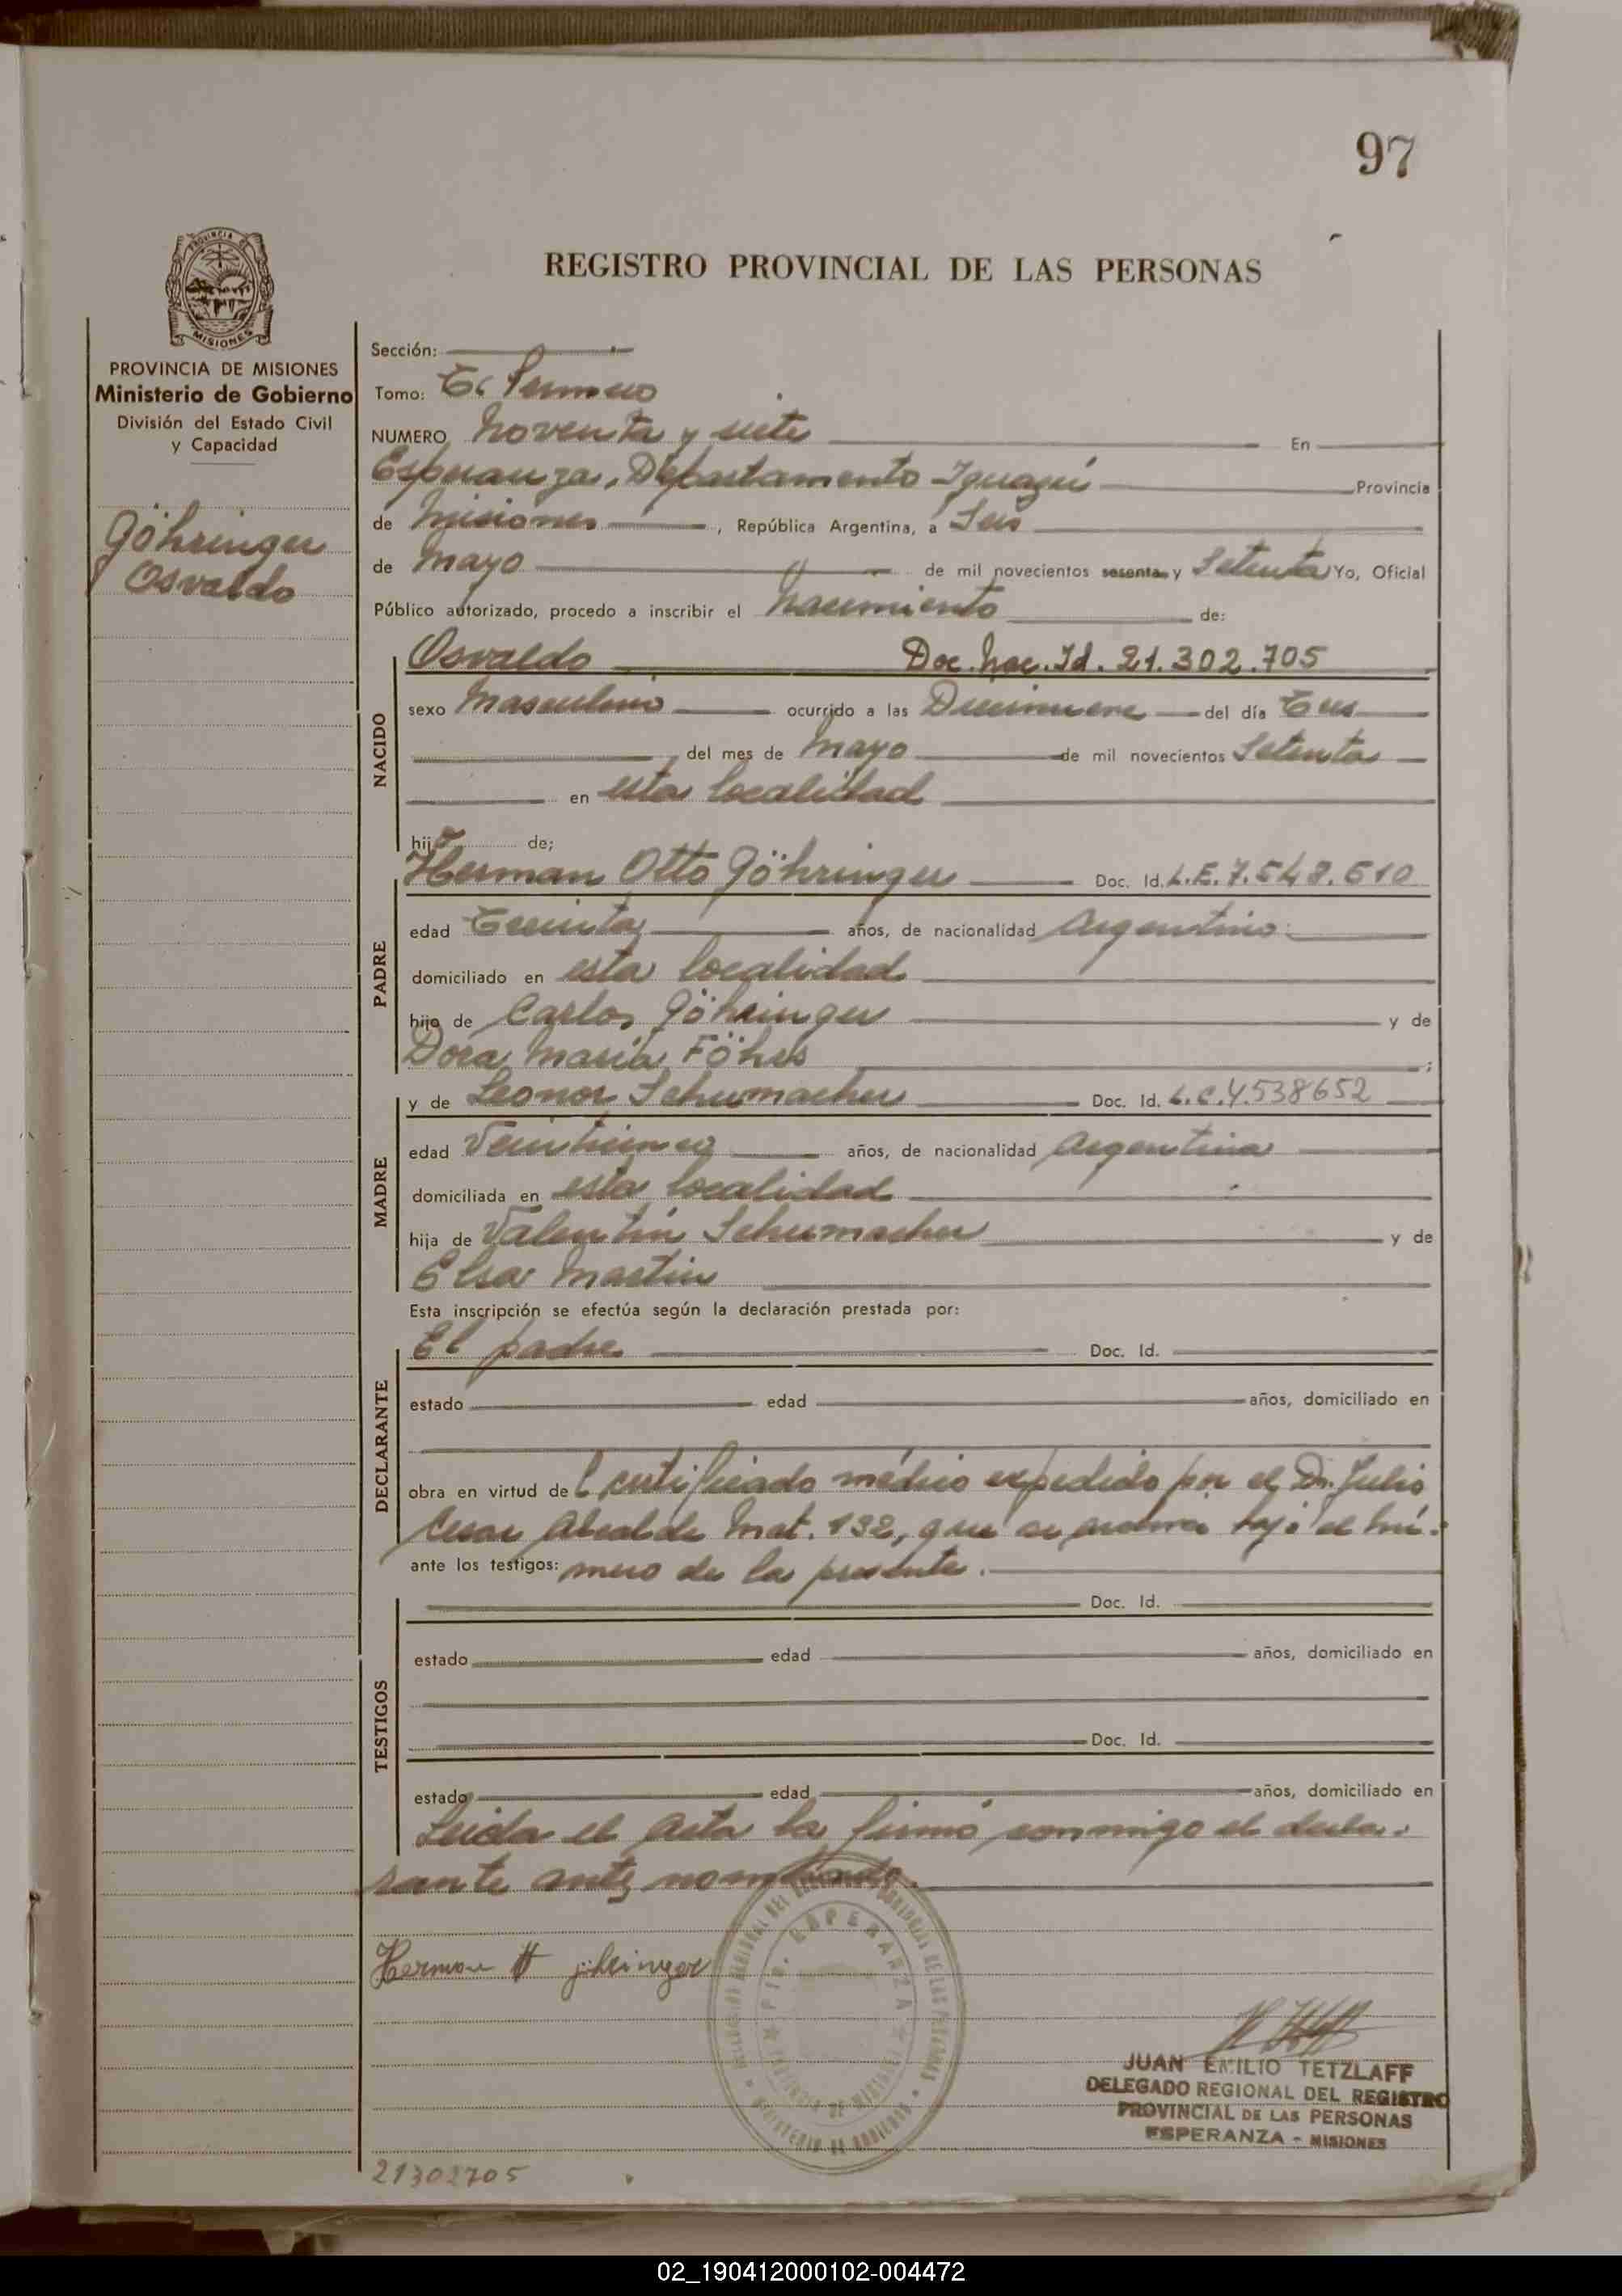 97
PROVINCIA DE
MISIONES
REGISTRO PROVINCIAL DE LAS PERSONAS
PROVINCIA DE MISIONES
Ministerio de Gobierno
División del Estado Civil
y Capacidad
Göhringer
Osvaldo
Sección:
Tomo: El Primero
NUMERO Noventa y siete En
Esperanza, Departamento Iguazú Provincia
de Misiones , República Argentina, a Seis
de Mayo de mil novecientos sesenta y Setenta Yo, Oficial
Público autorizado, procedo a inscribir el Nacimiento de:
NACIDO
Osvaldo Doc. Nac. Id. 21.302.705
sexo Masculino ocurrido a las Diecinueve del día Tres
, del mes de Mayo de mil novecientos Setenta
en esta localidad
hijo de;
PADRE
Herman Otto Göhringer Doc. Id. L.E. 7.548.610
edad Treinta años, de nacionalidad Argentino
domiciliado en esta localidad
hijo de Carlos Göhringer y de
Dora María Föhrs ;
MADRE
y de Leonor Schumacher Doc. Id. L.C. 4.538652
edad Veinticinco años, de nacionalidad Argentina
domiciliada en esta localidad
hija de Valentín Schumacher y de
Elsa Martin
Esta inscripción se efectúa según la declaración prestada por:
DECLARANTE
El padre Doc. Id.
estado edad años, domiciliado en
obra en virtud del certificado médico expedido por el Dr. Julio
Cesar Alcalde Mat. 132, que se archiva bajo el nú-
ante los testigos: mero de la presente.
TESTIGOS
Doc. Id.
estado edad años, domiciliado en
Doc. Id.
estado edad años, domiciliado en
Leida el Acta la firmó conmigo el decla-
rante antes nombrado.
Herman göhringer
DELEGACION REGIONAL DEL REGISTRO PROVINCIAL DE LAS PERSONAS
PTO. ESPERANZA
PROVINCIA DE MISIONES
MINISTERIO DE GOBIERNO
JUAN EMILIO TETZLAFF
DELEGADO REGIONAL DEL REGISTRO
PROVINCIAL DE LAS PERSONAS
ESPERANZA - MISIONES
21302705
02_190412000102-004472